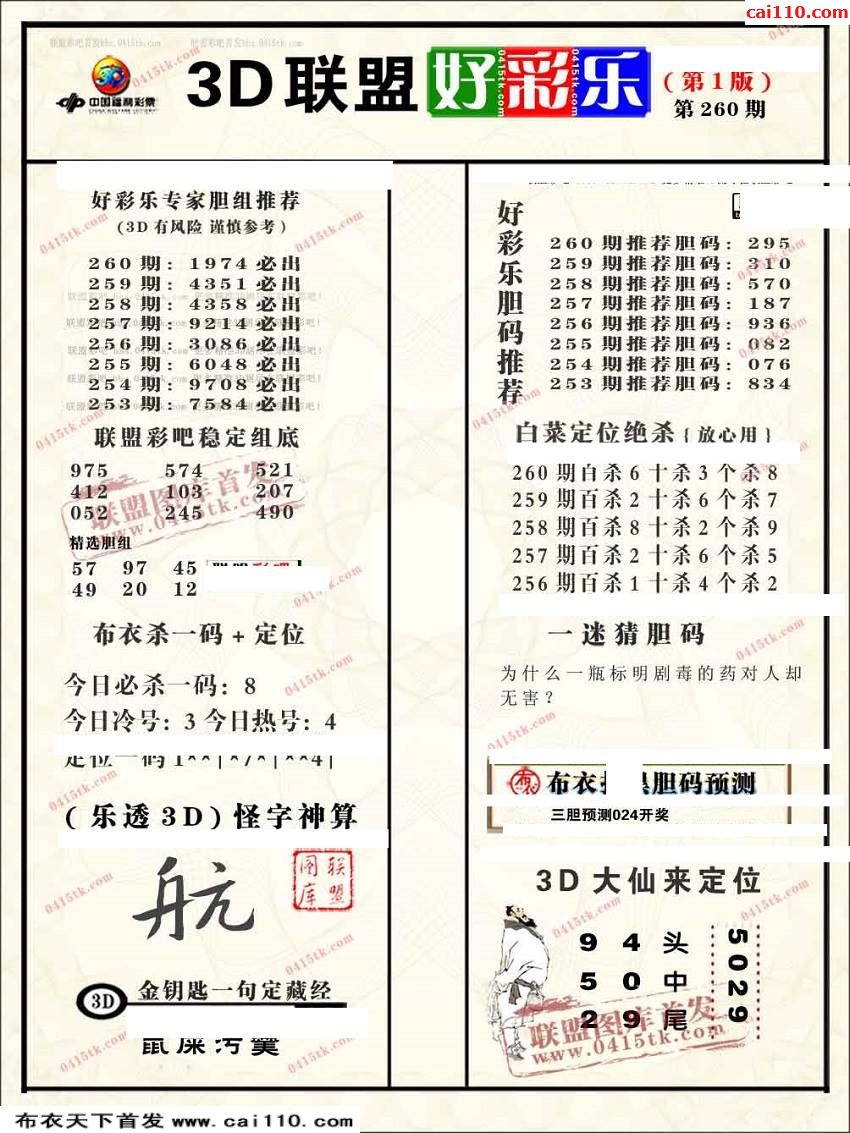 cai110.com
3D联盟好彩乐
0415tk.com 0415tk.com 0415tk.com
(第1版)
第260期
中国福利彩票
CHINA WELFARE LOTTERY
好彩乐专家胆组推荐
(3D有风险 谨慎参考)
260期: 1974必出
259期: 4351必出
258期: 4358必出
257期: 9214必出
256期: 3086必出
255期: 6048必出
254期: 9708必出
253期: 7584必出
联盟彩吧稳定组底
975 574 521
412 103 207
052 245 490
联盟图库首发
www.0415tk.com
精选胆组
57 97 45
49 20 12
布衣杀一码+定位
今日必杀一码: 8
今日冷号: 3 今日热号: 4
定位一码 1**|*7*|**4|
(乐透3D)怪字神算
航
联盟图库
3D 金钥匙一句定藏经
鼠屎污羹
好彩乐胆码推荐
260期推荐胆码: 295
259期推荐胆码: 310
258期推荐胆码: 570
257期推荐胆码: 187
256期推荐胆码: 936
255期推荐胆码: 082
254期推荐胆码: 076
253期推荐胆码: 834
白菜定位绝杀{放心用}
260期百杀6十杀3个杀8
259期百杀2十杀6个杀7
258期百杀8十杀2个杀9
257期百杀2十杀6个杀5
256期百杀1十杀4个杀2
一迷猜胆码
为什么一瓶标明剧毒的药对人却
无害?
布衣 胆码预测
三胆预测024开奖
3D大仙来定位
9 4 头
5 0 中
2 9 尾
5029
联盟图库首发
www.0415tk.com
布衣天下首发 www.cai110.com